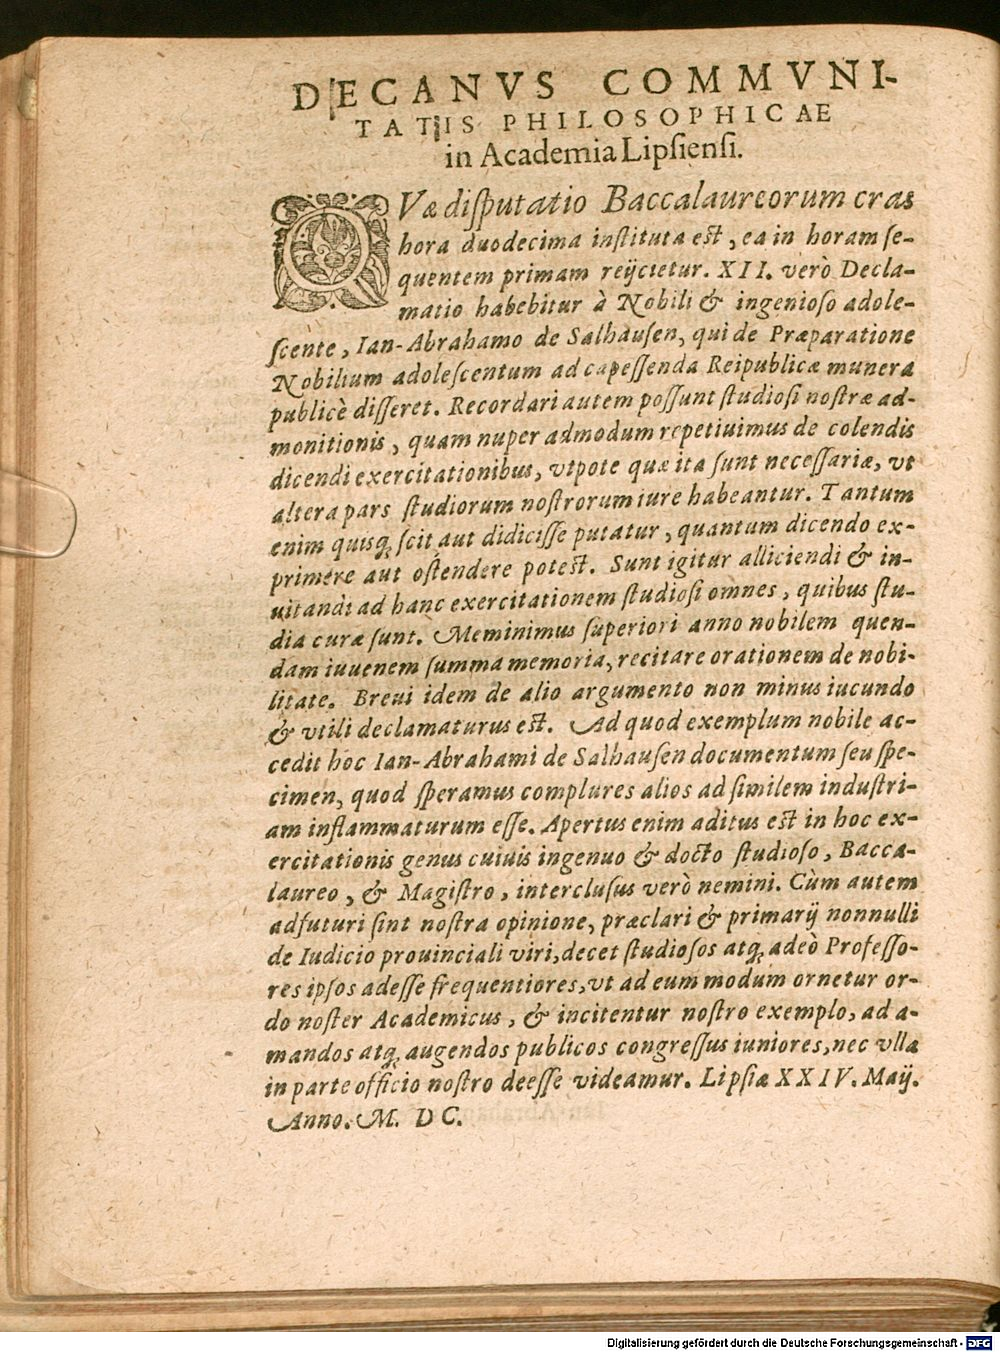 DECANVS COMMVNI-
TATIS PHILOSOPHICAE
in Academia Lipſienſi.
QVæ diſputatio Baccalaureorum cras
hora duodecima inſtituta eſt, ea in horam ſe-
quentem primam reijcietur. XII. verò Decla-
matio habebitur à Nobili & ingenioſo adole-
ſcente, Ian-Abrahamo de Salhauſen, qui de Præparatione
Nobilium adoleſcentum ad capeſſenda Reipublicæ munera
publicè diſſeret. Recordari autem poſſunt ſtudioſi noſtræ ad-
monitionis, quam nuper admodum repetiuimus de colendis
dicendi exercitationibus, vtpote quæ ita ſunt neceſſariæ, vt
altera pars ſtudiorum noſtrorum iure habeantur. Tantum
enim quisq; ſcit aut didiciſſe putatur, quantum dicendo ex-
primere aut oſtendere poteſt. Sunt igitur alliciendi & in-
uitandi ad hanc exercitationem ſtudioſi omnes, quibus ſtu-
dia curæ ſunt. Meminimus ſuperiori anno nobilem quen-
dam iuuenem ſumma memoria, recitare orationem de nobi-
litate. Breui idem de alio argumento non minus iucundo
& vtili declamaturus eſt. Ad quod exemplum nobile ac-
cedit hoc Ian-Abrahami de Salhauſen documentum ſeu ſpe-
cimen, quod ſperamus complures alios ad ſimilem induſtri-
am inflammaturum eſſe. Apertus enim aditus eſt in hoc ex-
ercitationis genus cuiuis ingenuo & docto ſtudioſo, Bacca-
laureo, & Magiſtro, intercluſus verò nemini. Cùm autem
adfuturi ſint noſtra opinione, præclari & primarij nonnulli
de Iudicio prouinciali viri, decet ſtudioſos atq; adeò Profeſſo-
res ipſos adeſſe frequentiores, vt ad eum modum ornetur or-
do noſter Academicus, & incitentur noſtro exemplo, ad a-
mandos atq; augendos publicos congreſſus iuniores, nec vlla
in parte officio noſtro deeſſe videamur. Lipſiæ XXIV. Maij.
Anno. M. DC.
Digitalisierung gefördert durch die Deutsche Forschungsgemeinschaft - DFG